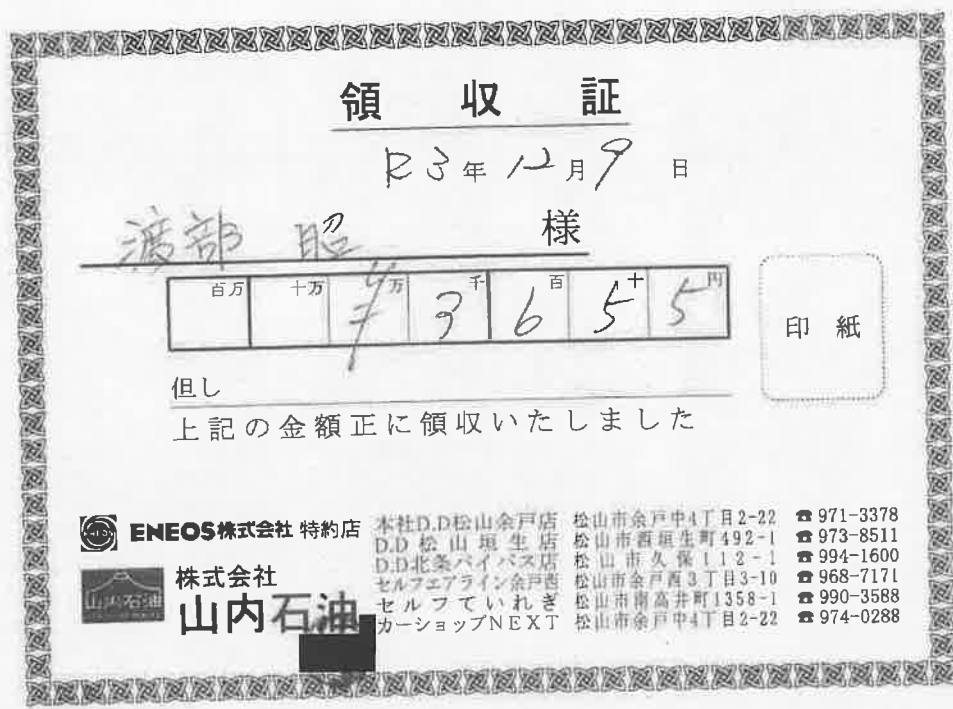 領収証
R3年12月9日
渡部 昭 様
百万 十万 万 千 百 十 円
¥3655
印紙
但し
上記の金額正に領収いたしました
ENEOS株式会社 特約店
株式会社
山内石油
山内石油
本社D.D松山余戸店 松山市余戸中4丁目2-22 ☎971-3378
D.D松山垣生店 松山市西垣生町492-1 ☎973-8511
D.D北条バイパス店 松山市久保112-1 ☎994-1600
セルフエアライン余戸西 松山市余戸西3丁目3-10 ☎968-7171
セルフていれぎ 松山市南高井町1358-1 ☎990-3588
カーショップNEXT 松山市余戸中4丁目2-22 ☎974-0288